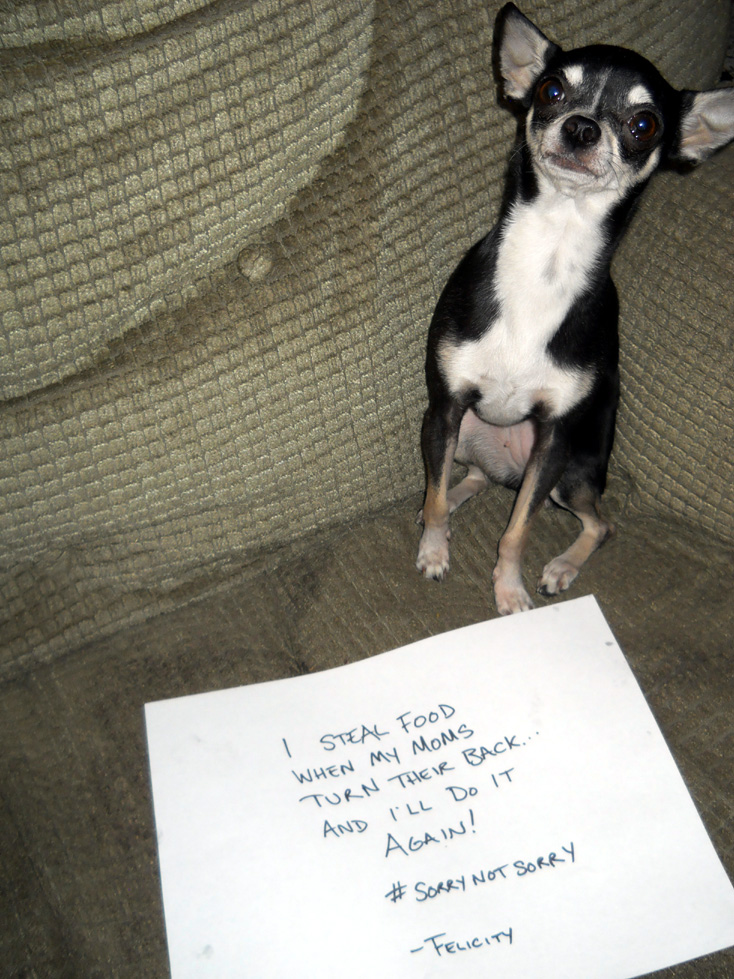 I STEAL FOOD
WHEN MY MOMS
TURN THEIR BACK...
AND I'LL DO IT
AGAIN!
# SORRY NOT SORRY
-FELICITY